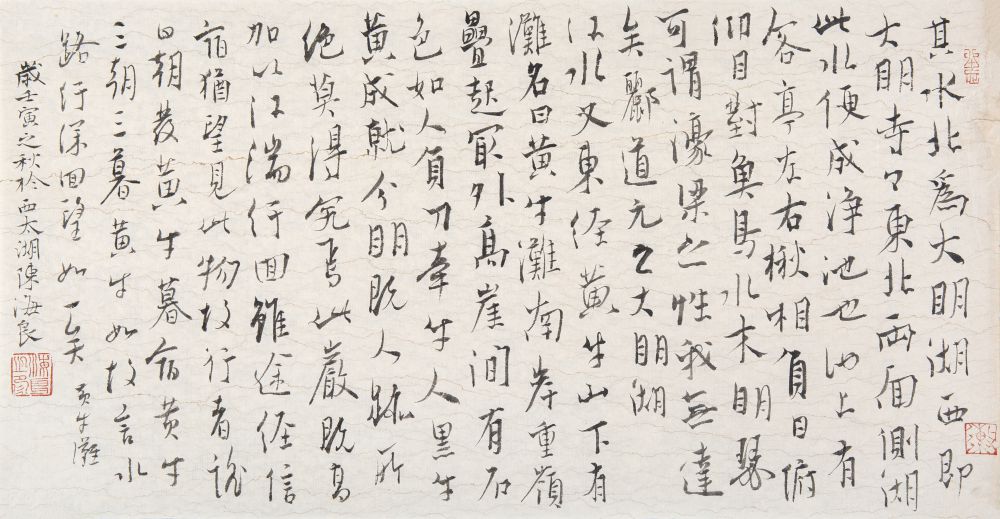 其水北為大明湖西即
大明寺々東北兩面側湖
此水便成淨池也池上有
客亭左右楸相負日俯
仰目對魚鳥水木明瑟
可謂濠梁之性我無達
矣酈道元之大明湖
江水又東逕黃牛山下有
灘名曰黃牛灘南岸重嶺
疊起最外高崖間有石
色如人負刀牽牛人黑牛
黃成就分明既人跡所
絕莫得究焉此巖既高
加以江湍行回雖途徑信
宿猶望見此物故行者謠
曰朝發黃牛暮宿黃牛
三朝三暮黃牛如故言水
路行深回望如一矣 黃牛灘
歲壬寅之秋於西太湖陳海良